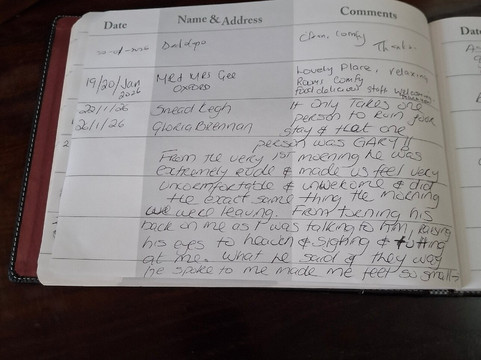 Date Name & Address Comments
Clean, Comfy
Thanks.
19/20/Jan 2026 MR & MRS Gee OXFORD Lovely Place, relaxing
Rooms Comfy
Food delicious staff welcoming
20/1/26 Sinead Legh It only Takes one
20/1/26 Gloria Brennan person to Ruin your
stay & that one
person was GARY!!
From the very 1st morning he was
extremely rude & made us feel very
uncomfortable & unwelcome & did
the exact same thing the morning
we were leaving. From turning his
back on me as I was talking to him, Raising
his eyes to heaven & sighing & tutting
at me. What he said & they way
he spoke to me made me feel so small
Date